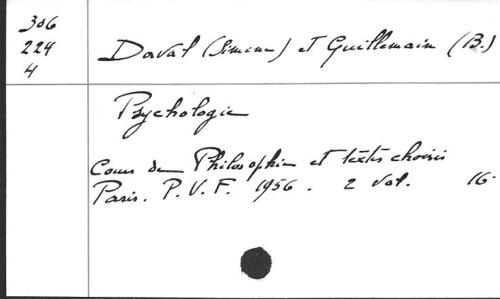 306
224
4
Daval (Simone) et Guillemain (B.)
Psychologie
Cours de Philosophie et textes choisis
Paris. P. U. F. 1956. 2 vol. 16